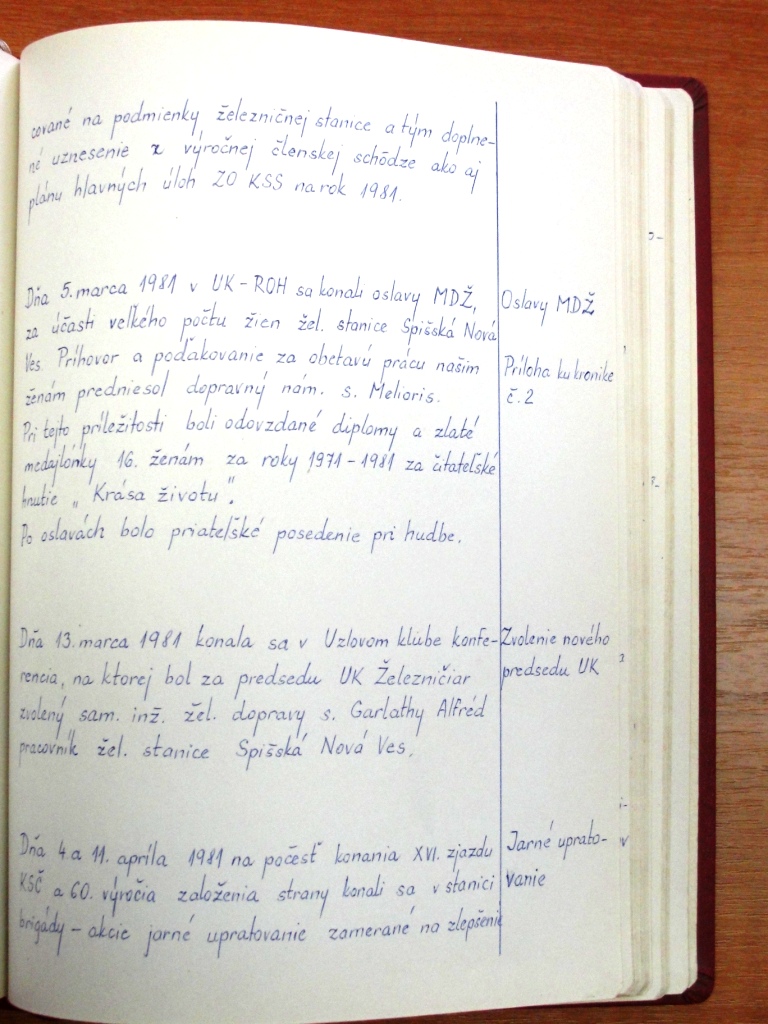 cované na podmienky železničnej stanice a tým doplne-
né uznesenie z výročnej členskej schôdze ako aj
plánu hlavných úloh ZO KSS na rok 1981.
Dňa 5. marca 1981 v UK - ROH sa konali oslavy MDŽ,
za účasti veľkého počtu žien žel. stanice Spišská Nová
Ves. Príhovor a poďakovanie za obetavú prácu našim
ženám predniesol dopravný nám. s. Melioris.
Pri tejto príležitosti boli odovzdané diplomy a zlaté
medajlónky 16. ženám za roky 1971 - 1981 za čitateľské
hnutie „ Krása životu ".
Po oslavách bolo priateľské posedenie pri hudbe.
Oslavy MDŽ
Príloha ku kronike
č. 2
Dňa 13. marca 1981 konala sa v Uzlovom klube konfe-
rencia, na ktorej bol za predsedu UK Železničiar
zvolený sam. inž. žel. dopravy s. Garlathy Alfréd
pracovník žel. stanice Spišská Nová Ves.
Zvolenie nového
predsedu UK
Dňa 4. a 11. apríla 1981 na počesť konania XVI. zjazdu
KSČ a 60. výročia založenia strany konali sa v stanici
brigády - akcie jarné upratovanie zamerané na zlepšenie
Jarné uprato-
vanie